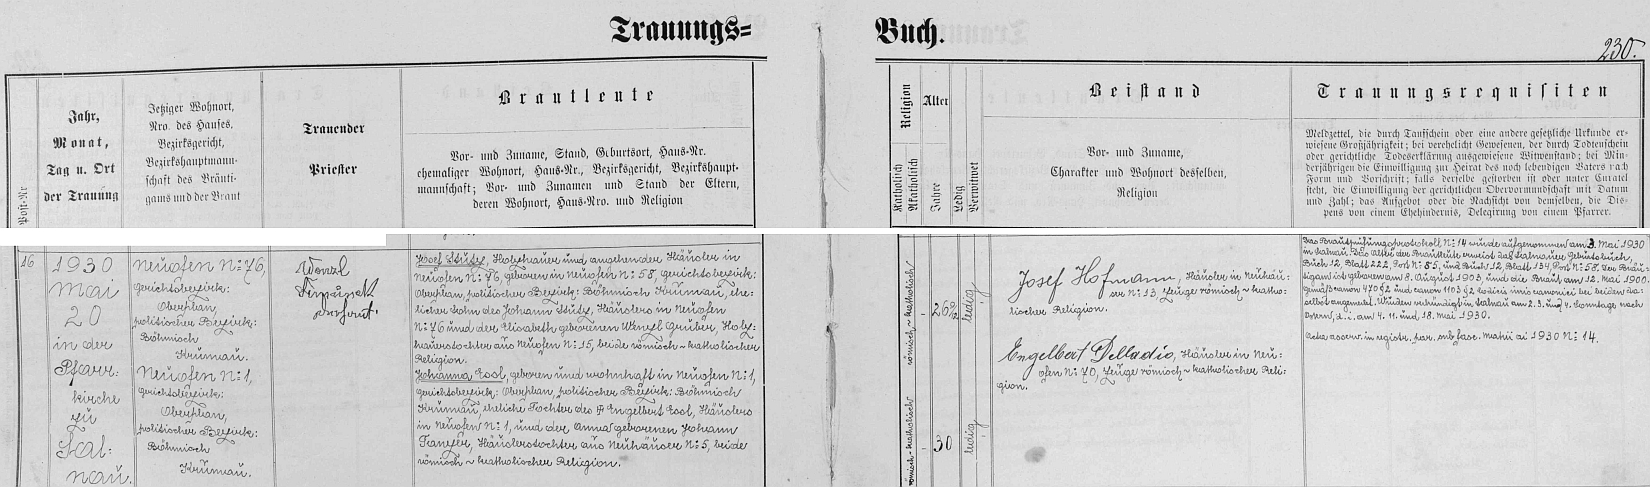 Trauungs=
Buch.
230.
Post-Nr
Jahr,
Monat,
Tag u. Ort
der Trauung
Jetziger Wohnort,
Nro. des Hauses,
Bezirksgericht,
Bezirkshauptmann-
schaft des Bräuti-
gams und der Braut
Trauender
Priester
Brautleute
Vor- und Zuname, Stand, Geburtsort, Haus-Nr.
ehemaliger Wohnort, Haus-Nr., Bezirksgericht, Bezirkshaupt-
mannschaft; Vor- und Zunamen und Stand der Eltern,
deren Wohnort, Haus-Nro. und Religion
Religion
Katholisch
Akatholisch
Alter
Jahre
Ledig
Verwitwet
Beistand
Vor- und Zuname,
Charakter und Wohnort desselben,
Religion
Trauungsrequisiten
Meldzettel, die durch Taufschein oder eine andere gesetzliche Urkunde er-
wiesene Großjährigkeit; bei verehelicht Gewesenen, der durch Todtenschein
oder gerichtliche Todeserklärung ausgewiesene Witwenstand; bei Min-
derjährigen die Einwilligung zu Heirat des noch lebenden Vaters nach
Form und Vorschrift; falls derselbe gestorben ist oder unter Curatel
steht, die Einwilligung der gerichtlichen Obervormundschaft mit Datum
und Zahl; das Aufgebot oder die Nachsicht von demselben, die Dis-
pens von einem Ehehindernis, Delegirung von einem Pfarrer.
16
1930
Mai
20
in der
Pfarr:
kirche
zu
Sal:
nau.
Neuofen N: 76,
Gerichtsbezirk:
Oberplan,
politischer Bezirk:
Böhmisch
Krumau.
Neuofen N: 1,
Gerichtsbezirk:
Oberplan,
politischer Bezirk:
Böhmisch
Krumau.
Wenzl
Josef Stutz, Holzhauer und angehender Häusler in
Neuofen N: 76, geboren in Neuofen N: 58, Gerichtsbezirk:
Oberplan, politischer Bezirk: Böhmisch Krumau, ehe-
licher Sohn des Johann Stutz, Häuslers in Neuofen
N: 76 und der Elisabeth geborenen Wenzl Gruber, Holz:
hauerstochter aus Neuofen N: 15, beide römisch-katholischer
Religion.
Johanna Essl, geboren und wohnhaft in Neuofen N: 1,
Gerichtsbezirk: Oberplan, politischer Bezirk: Böhmisch
Krumau, eheliche Tochter des Engelbert Essl, Häuslers
in Neuofen N: 1, und der Anna geborenen Johann
Tanzer, Häuslerstochter aus Neuhäuser N: 5, beide
römisch-katholischer Religion.
römisch-katholisch
26 9/12
ledig
römisch-katholisch
30
ledig
Josef Hofmann, Häusler in Neuhäu-
ser N: 13, Zeuge römisch-katho-
lischer Religion.
Engelbert Delladio, Häusler in Neu-
ofen N: 70, Zeuge römisch-katholischer Reli-
gion.
Das Brautprüfungsprotokoll N: 14 wurde aufgenommen am 3. Mai 1930
in Salnau. Das Alter der Brautleute erweist das Salnauer Geburtsbuch,
Buch 12, Blatt 222, Post N: 85, und Buch 12, Blatt 134, Post N: 58. Der Bräu-
tigam ist geboren am 8. August 1903, und die Braut am 12. Mai 1900.
Gemäß canon 470 § 2 und canon 1103 § 2 codicis iuris canonici bei beiden da-
selbst angemerkt. Wurden verkündigt in Salnau am 2. 3. und 4. Sonntage nach
Ostern, d. i. am 4. 11. und 18. Mai 1930.
Acta asserv. in registr. par. sub fasc. matrii ai 1930 N: 14.